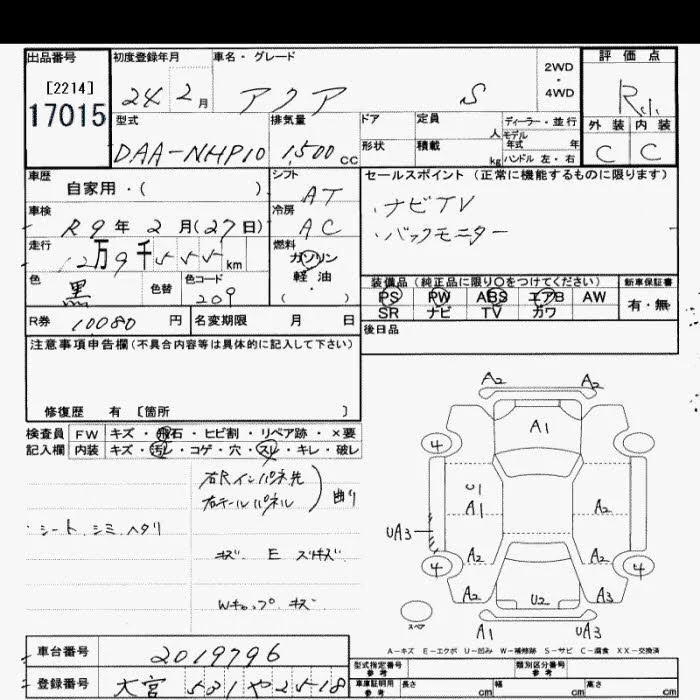 出品番号 初度登録年月 車名・グレード 評価点
[2214] 2WD・4WD
17015 24 2月 アクア S R
外装 内装
C C
型式 排気量 ドア 定員 人 ディーラー・並行
モデル年式 年
DAA-NHP10 1,500cc 形状 積載 kg ハンドル 左・右
車歴 シフト セールスポイント (正常に機能するものに限ります)
自家用・( ) AT
・ナビTV
車検 冷房
R9年 2月(27日) AC
・バックモニター
走行 燃料
12万9千 km ガソリン
軽油
・( )
色 色替 色コード
黒 209
装備品 (純正品に限り○をつけてください) 新車保証書
PS PW ABS エアB AW 有・無
SR ナビ TV カワ
R券 10080 円 名変期限 月 日
後日品
注意事項申告欄(不具合内容等は具体的に記入して下さい)
修復歴 有 [箇所 ]
検査員 FW キズ・飛石・ヒビ割・リペア跡・×要
記入欄 内装 キズ・汚レ・コゲ・穴・スレ・キレ・破レ
右Rインパネ先
右テールパネル
曲り
・シート、シミ、ヘタリ
キズ E
Wチップ キズ
A2 A2
A1
4
U1
A1 A2
UA3
A2 A2
4 4
A2 U2 A3
スペア
A1 UA3
A-キズ E-エクボ U-凹み W-補修跡 S-サビ C-腐食 XX-交換済
車台番号 2019796
型式指定番号 参考 類別区分番号 参考
登録番号 大宮 531 や 2518
車庫証明用 参考 長さ cm 幅 cm 高さ cm